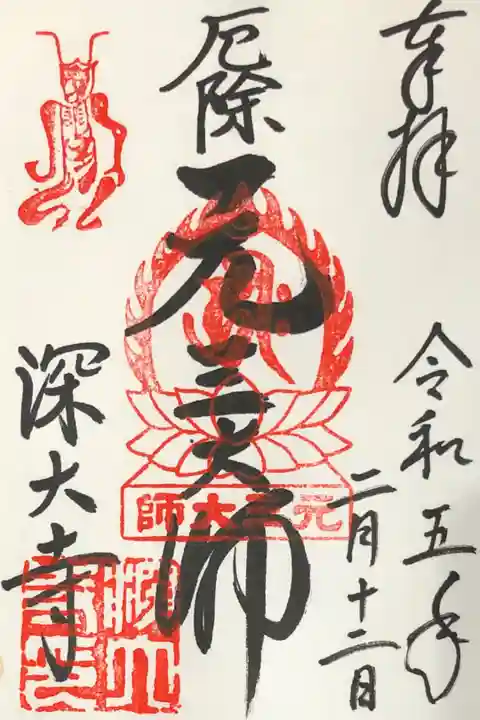 奉拝
令和五年
二月十二日
厄除
元三大師
元三大師
深大寺